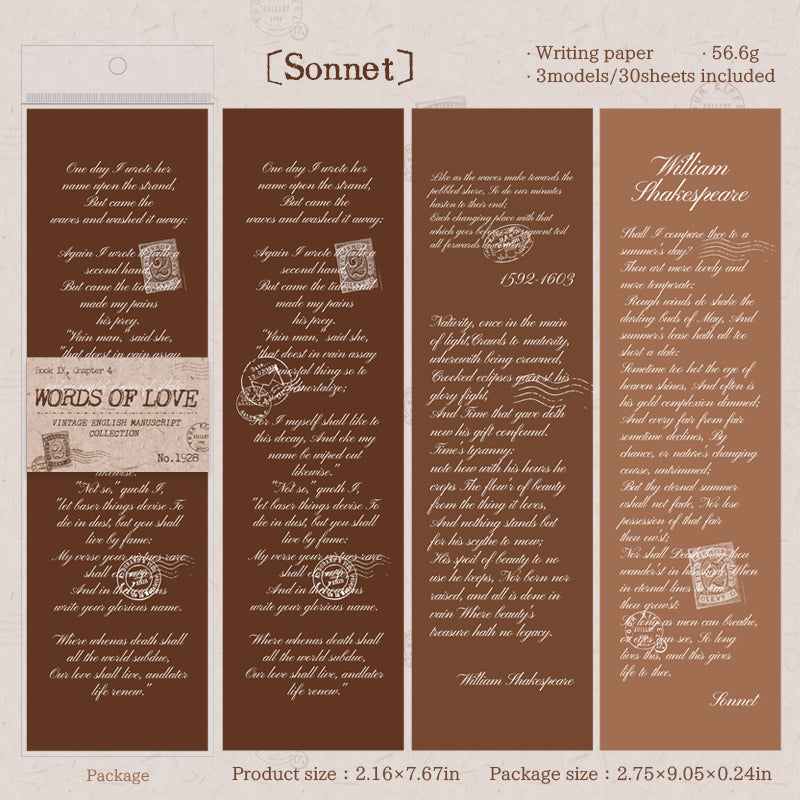 [Sonnet]
· Writing paper · 56.6g
· 3models/30sheets included
One day I wrote her
name upon the strand,
But came the
waves and washed it away:
Again I wrote
second hand
But came the
made my pains
his prey.
"Vain man, said she,
"that doest in vain assay
Book IX, Chapter 4
WORDS OF LOVE
VINTAGE ENGLISH MANUSCRIPT
COLLECTION
No.1928
likewise."
"Not so," quoth I,
"let baser things devise To
die in dust, but you shall
live by fame:
My verse your virtues rare
shall
And in
write your glorious name.
Where whenas death shall
all the world subdue,
Our love shall live, andlater
life renew."
One day I wrote her
name upon the strand,
But came the
waves and washed it away:
Again I wrote
second hand
But came the
made my pains
his prey.
"Vain man, said she,
"that doest in vain assay
mortal thing so to
immortalize;
For I myself shall like to
this decay, And eke my
name be wiped out
likewise."
"Not so," quoth I,
"let baser things devise To
die in dust, but you shall
live by fame:
My verse your virtues rare
shall
And in
write your glorious name.
Where whenas death shall
all the world subdue,
Our love shall live, andlater
life renew."
Like as the waves make towards the
pebbled shore, So do our minutes
hasten to their end;
Each changing place with that
which goes before, in sequent toil
all forwards do contend.
1592-1603
Nativity, once in the main
of light, Crawls to maturity,
wherewith being crowned,
Crooked eclipses gainst his
glory fight,
And Time that gave doth
now his gift confound.
Time's tyranny:
note how with his hours he
crops The flow'r of beauty
from the thing it loves,
And nothing stands but
for his scythe to mow;
His spoil of beauty to no
use he keeps, Nor born nor
raised, and all is done in
vain Where beauty's
treasure hath no legacy.
William Shakespeare
William
Shakespeare
Shall I compare thee to a
summer's day?
Thou art more lovely and
more temperate:
Rough winds do shake the
darling buds of May, And
summer's lease hath all too
short a date:
Sometime too hot the eye of
heaven shines, And often is
his gold complexion dimmed;
And every fair from fair
sometime declines, By
chance, or nature's changing
course, untrimmed;
But thy eternal summer
shall not fade, Nor lose
possession of that fair
thou ow'st;
Nor shall Death brag thou
wander'st in his shade, When
in eternal lines
thou grow'st:
So long as men can breathe,
eyes can see, So long
lives this, and this gives
life to thee.
Sonnet
Package
Product size : 2.16×7.67in
Package size : 2.75×9.05×0.24in